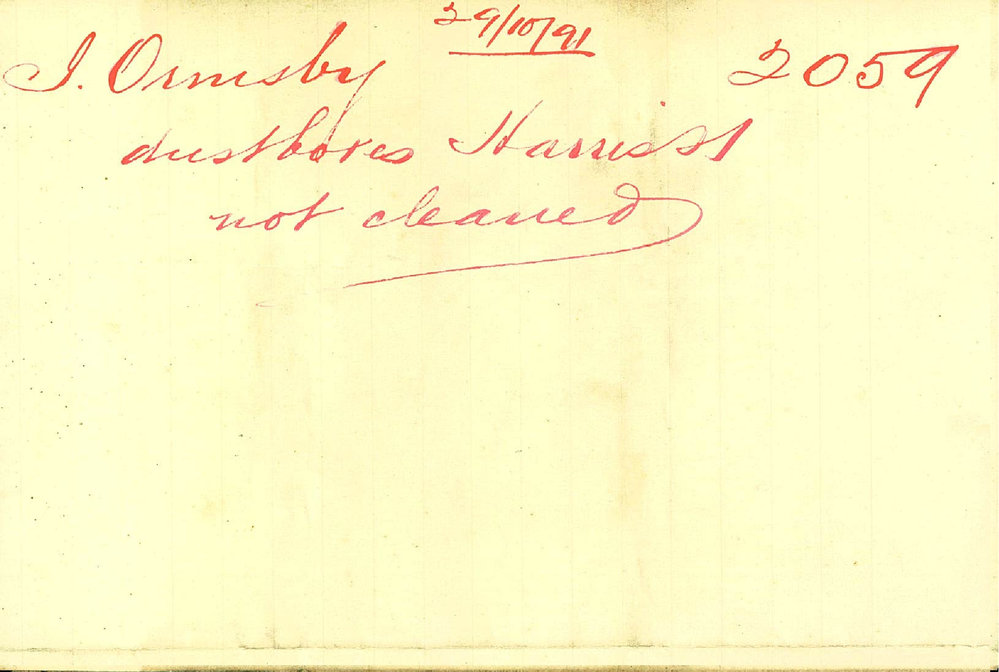 29/10/91
J. Ormsby 2059
dustboxes Harris St
not cleaned